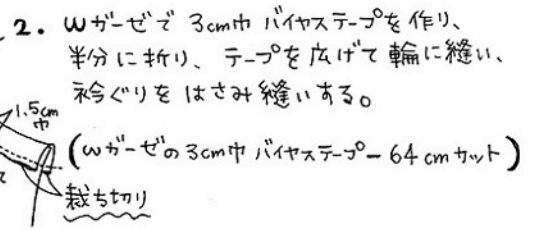 2. Wガーゼで 3cm巾 バイヤステープを作り、
半分に折り、テープを広げて輪に縫い、
衿ぐりを はさみ縫いする。
1.5cm
巾
(Wガーゼの3cm巾 バイヤステープー64cmカット)
裁ち切り